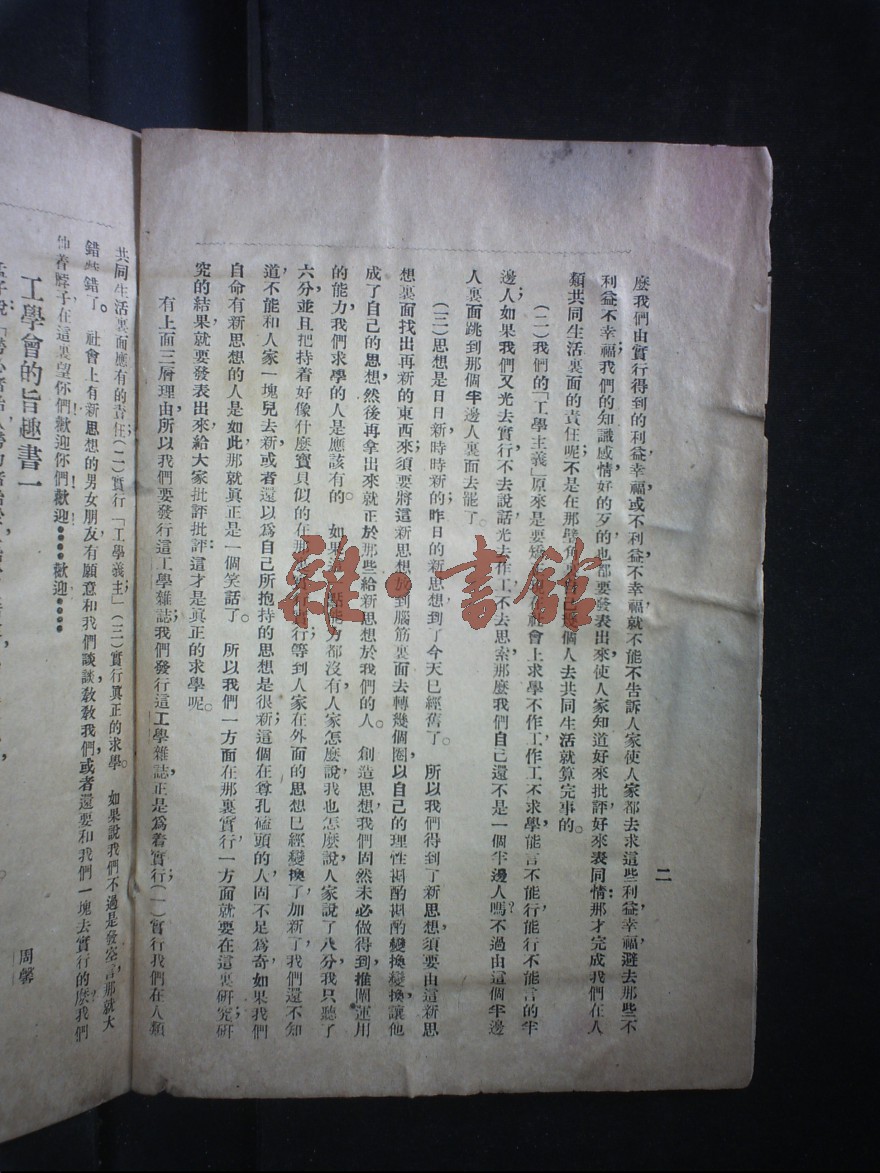 二
麼我們由實行得到的利益幸福，或不利益不幸福，就不能不告訴人家使人家都去求這些利益幸福，避去那些不
利益不幸福，我們的知識感情，好的歹的也都要發表出來，使人家知道好來批評，好來表同情：那才完成我們在人
類共同生活裏面的責任呢，不是在那壁角
個人去共同生活就算完事的。
（二）我們的「工學主義」原來是要矯
社會上求學不作工，作工不求學，能言不能行，能行不能言的半
邊人；如果我們又光去實行不去說話，光去作工不去思索，那麼我們自己還不是一個半邊人嗎？不過由這個半邊
人裏面跳到那個半邊人裏面去罷了。
（三）思想是日日新，時時新的；昨日的新思想，到了今天已經舊了。所以我們得到了新思想，須要由這新思
想裏面找出再新的東西來；須要將這新思想
到腦筋裏面去轉幾個圈，以自己的理性斟酌斟酌，變換變換，讓他
成了自己的思想，然後再拿出來就正於那些給新思想於我們的人。創造思想，我們固然未必做得到；推闡運用
的能力，我們求學的人是應該有的。如果
能力都沒有，人家怎麼說，我也怎麼說，人家說了八分，我只聽了
六分，並且把持着好像什麼寶貝似的在那
行，等到人家在外面的思想已經變換了，加新了，我們還不知
道，不能和人家一塊兒去新，或者還以爲自己所抱持的思想是很新；這個在尊孔磕頭的人，固不足爲奇，如果我們
自命有新思想的人是如此，那就眞正是一個笑話了。所以我們一方面在那裏實行，一方面就要在這裏研究；研
究的結果，就要發表出來，給大家批評批評：這才是眞正的求學呢。
有上面三層理由，所以我們要發行這工學雜誌；我們發行這工學雜誌，正是爲着實行；（一）實行我們在人類
共同生活裏面應有的責任；（二）實行「工學義主」；（三）實行眞正的求學。如果說我們不過是發空言，那就大
錯特錯了。社會上有新思想的男女朋友，有願意和我們談談，敎敎我們，或者還要和我們一塊去實行的麼？我們
伸着脖子在這裏望你們！歡迎你們！歡迎……歡迎……
工學會的旨趣書一
周馨